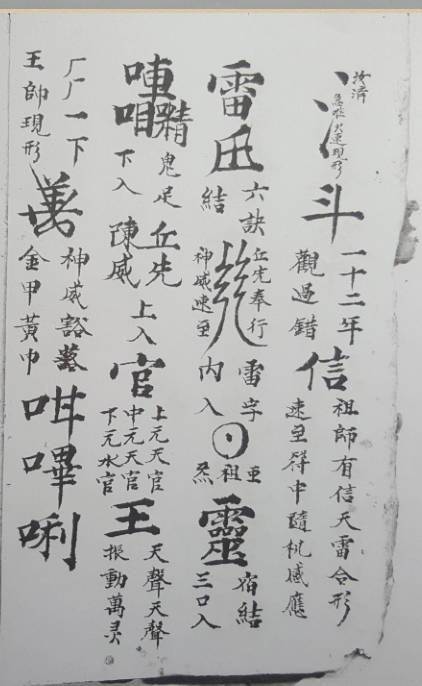 汝濟
急准火速現形
斗
一十二年
觀過錯
信
祖師有信天雷合形
速至符中隨机感應
雷
六訣
結
丘先奉行
神威速至
雷字
內入
祖
靈
宿結
三口入
精
鬼足
下入
丘先
陳威
上入
官
上元天官
中元天官
下元水官
王
天聲天聲
振動萬灵
厂厂一下
王帥現形
神威豁落
金甲黃巾
咁嗶唎